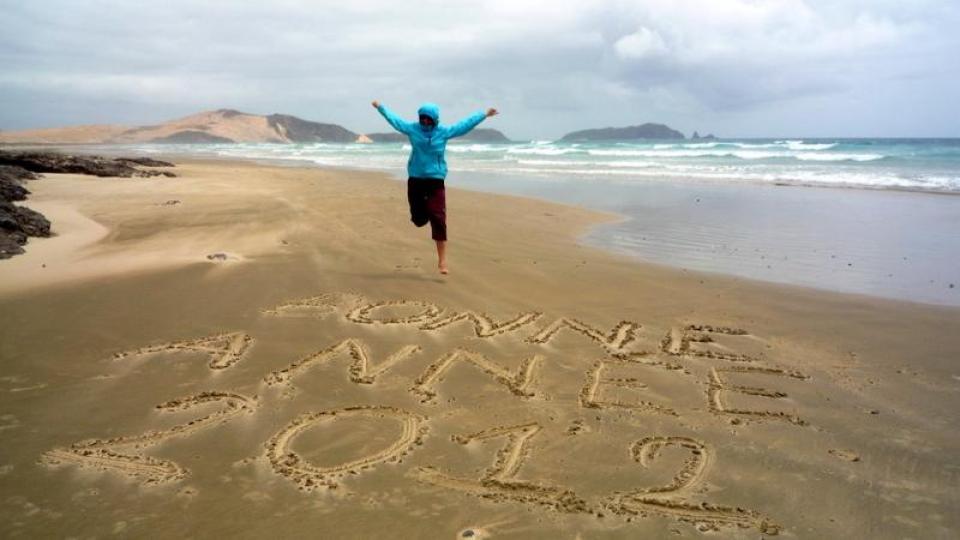 BONNE
ANNEE
2012